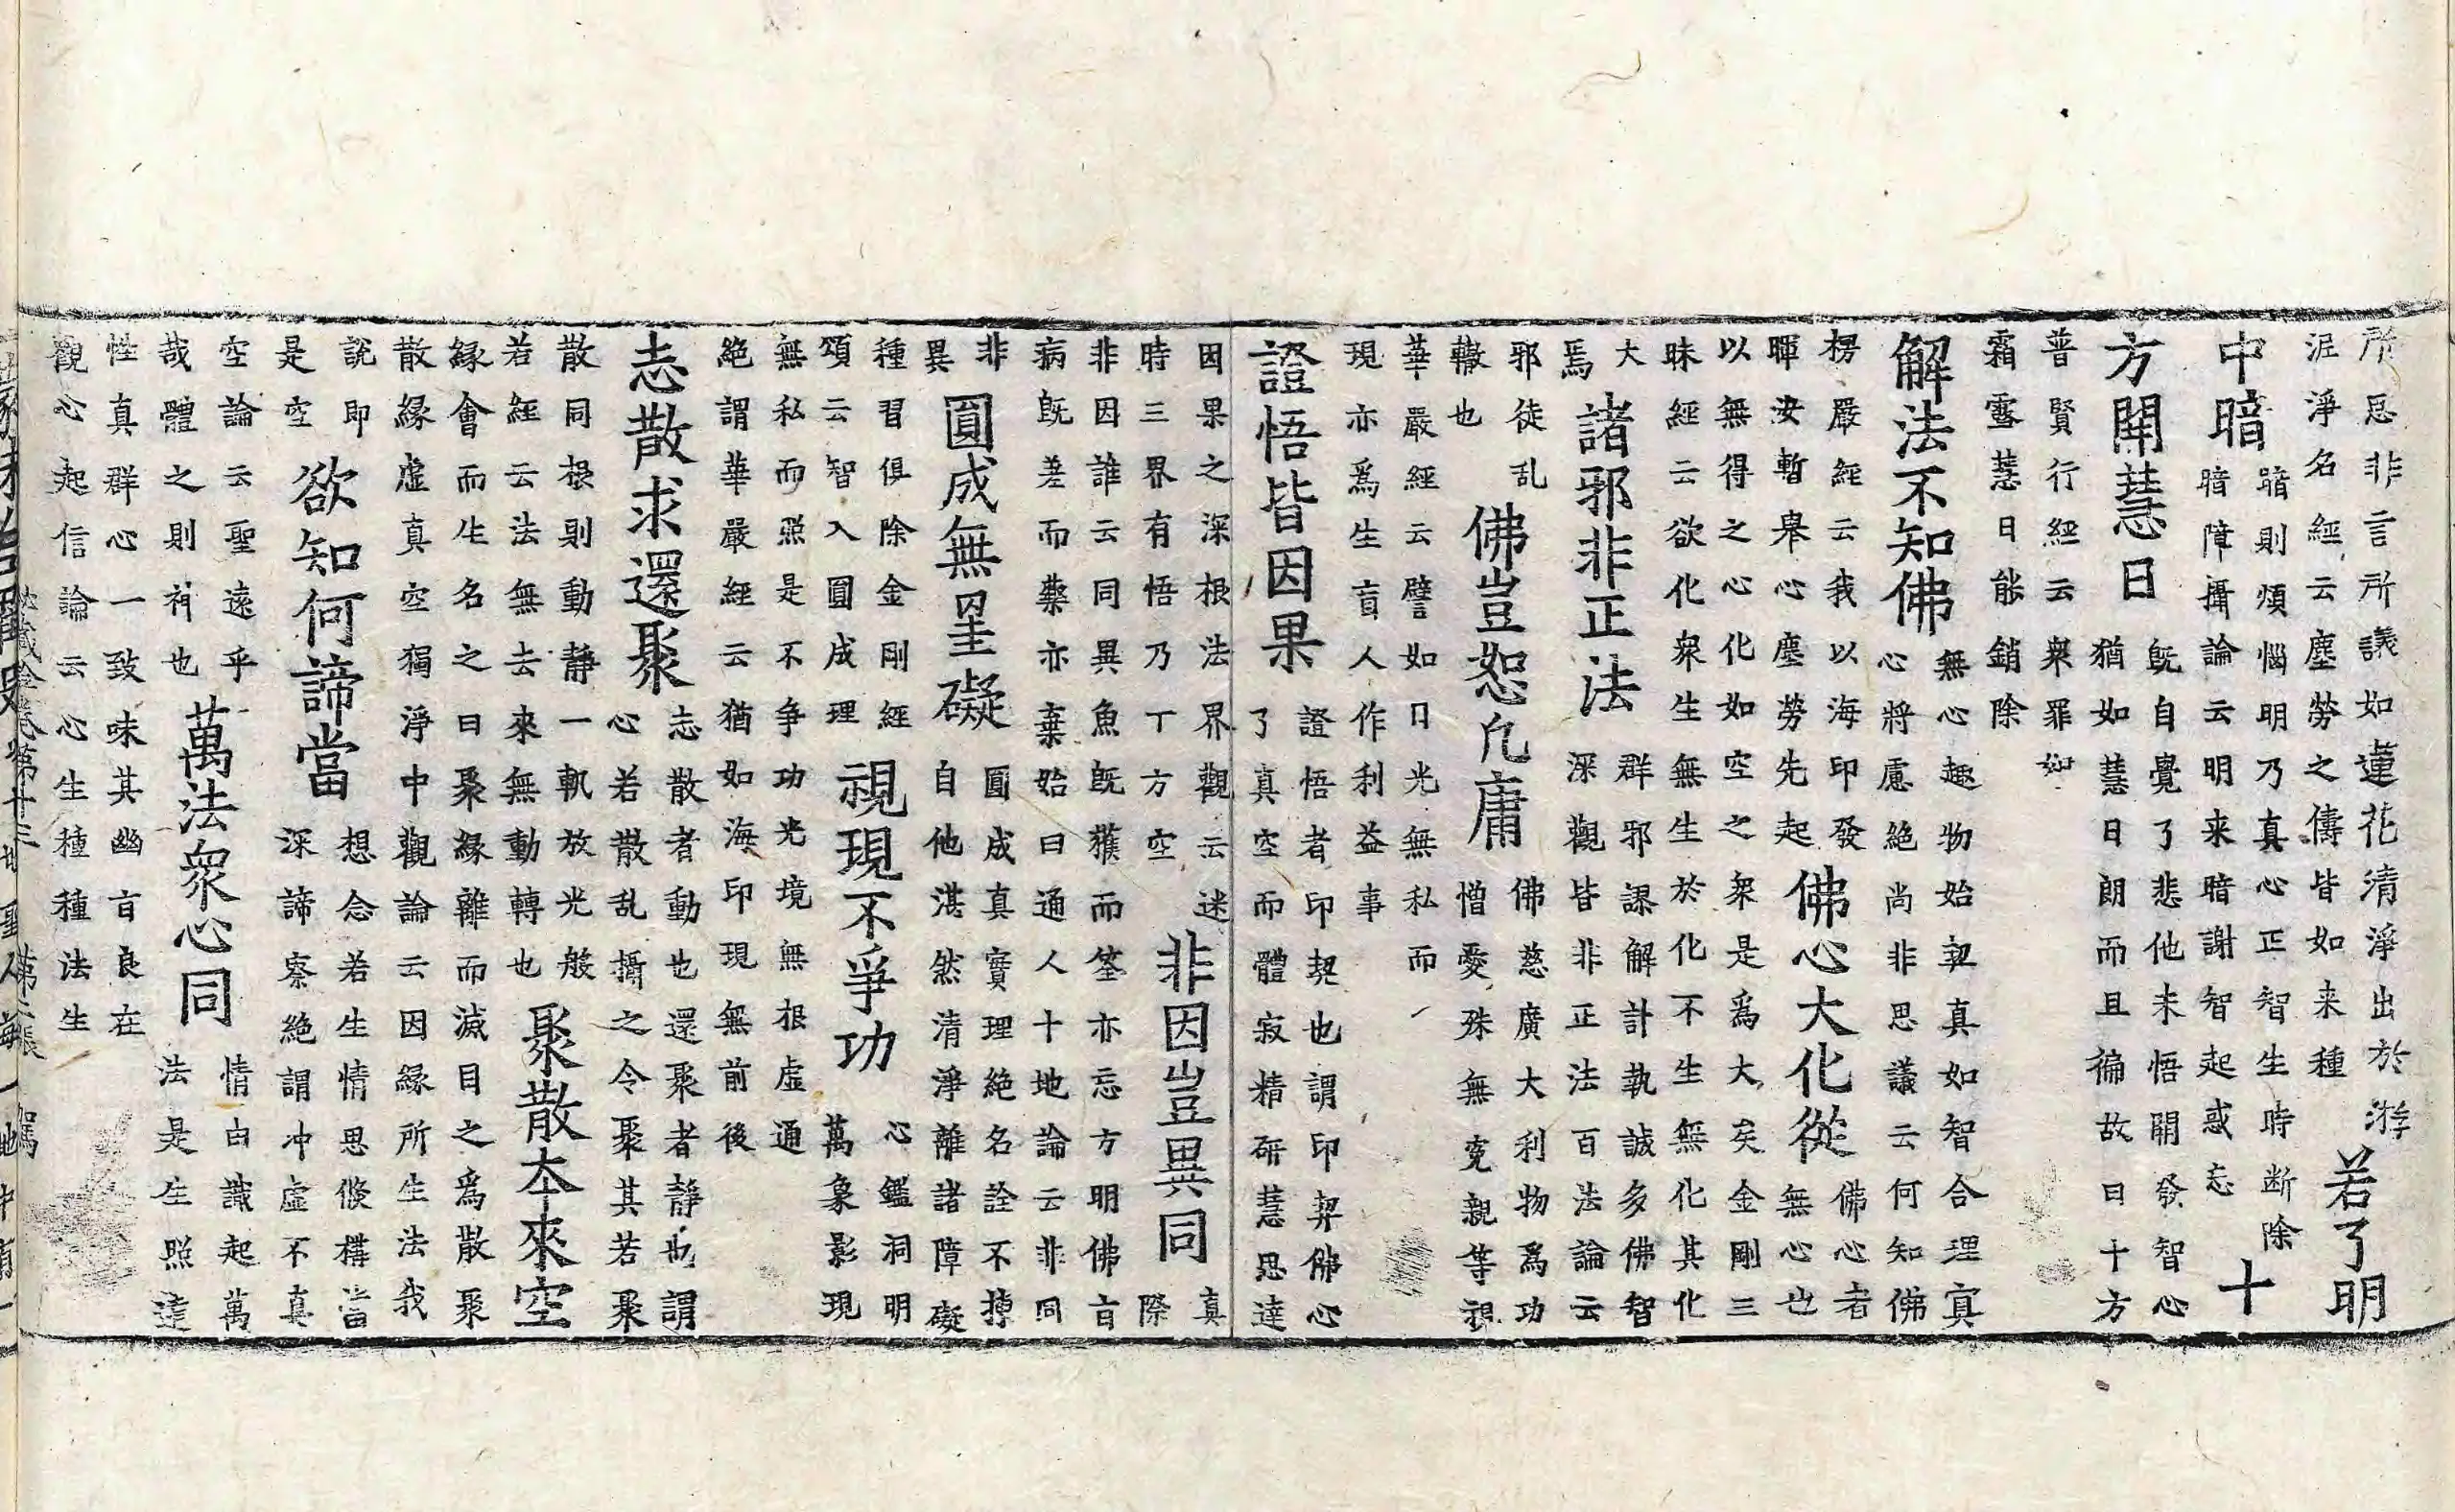 所惡非言所議如蓮花清淨出於淤
泥淨名經云塵勞之儔皆如来種
若了明
中暗
暗則煩惱明乃真心正智生時断除
暗障攝論云明来暗謝智起惑忘
十
方開慧日
旣自覺了悲他未悟開發智心
猶如慧日朗而且徧故曰十方
普賢行經云衆罪如
霜露慧日能銷除
解法不知佛
無心趣物始契真如智合理寘
心將慮絶尚非思議云何知佛
楞嚴經云我以海印發
暉汝暫舉心塵勞先起
佛心大化從
佛心者
無心也
以無得之心化如空之衆是爲大矣金剛三
昧經云欲化衆生無生於化不生無化其化
大
焉
諸邪非正法
群邪謬解計執誠多佛智
深觀皆非正法百法論云
邪徒乱
轍也
佛豈恕凡庸
佛慈廣大利物爲功
憎愛殊無寃親等視
華嚴經云譬如日光無私而
現亦爲生盲人作利益事
證悟皆因果
證悟者印契也謂印契佛心
了真空而體寂精研慧思達
因果之深根法界觀云迷
時三界有悟乃丅方空
非因豈異同
真
際
非因誰云同異魚旣獲而筌亦忘方明佛言
病旣差而藥亦棄始曰通人十地論云非同
非
異
圓成無罣礙
圓成真實理絶名詮不掉
自他湛然清淨離諸障礙
種習俱除金剛經
頌云智入圓成理
視現不爭功
心鑑洞明
萬象影現
無私而照是不争功光境無根虛通
絶謂華嚴經云猶如海印現無前後
志散求還聚
志散者動也還聚者靜也謂
心若散乱攝之令聚其若聚
散同根則動静一軌放光般
若經云法無去來無動轉也
聚散本來空
緣會而生名之曰聚緣離而滅目之爲散聚
散緣虛真空獨淨中觀論云因緣所生法我
説即
是空
欲知何諦當
想念若生情思倏構當
深諦察絶謂冲虛不真
空論云聖遠乎
哉體之則神也
萬法衆心同
情白識起萬
法是生照達
性真群心一致味其幽旨良在
觀心起信論云心生種種法生